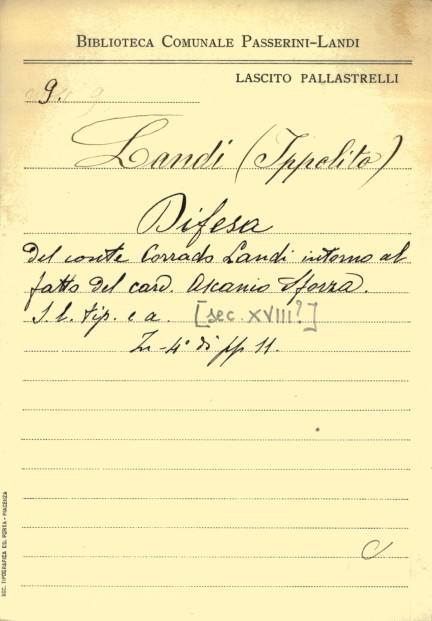 BIBLIOTECA COMUNALE PASSERINI-LANDI
LASCITO PALLASTRELLI
9.
Landi (Ippolito)
Difesa
del conte Corrado Landi intorno al
fatto del card. Ascanio Sforza.
S. l. tip. e a. [sec. XVIII?]
In-4° di pp 11.
C
SOC. TIPOGRAFICA ED. PORTA - PIACENZA